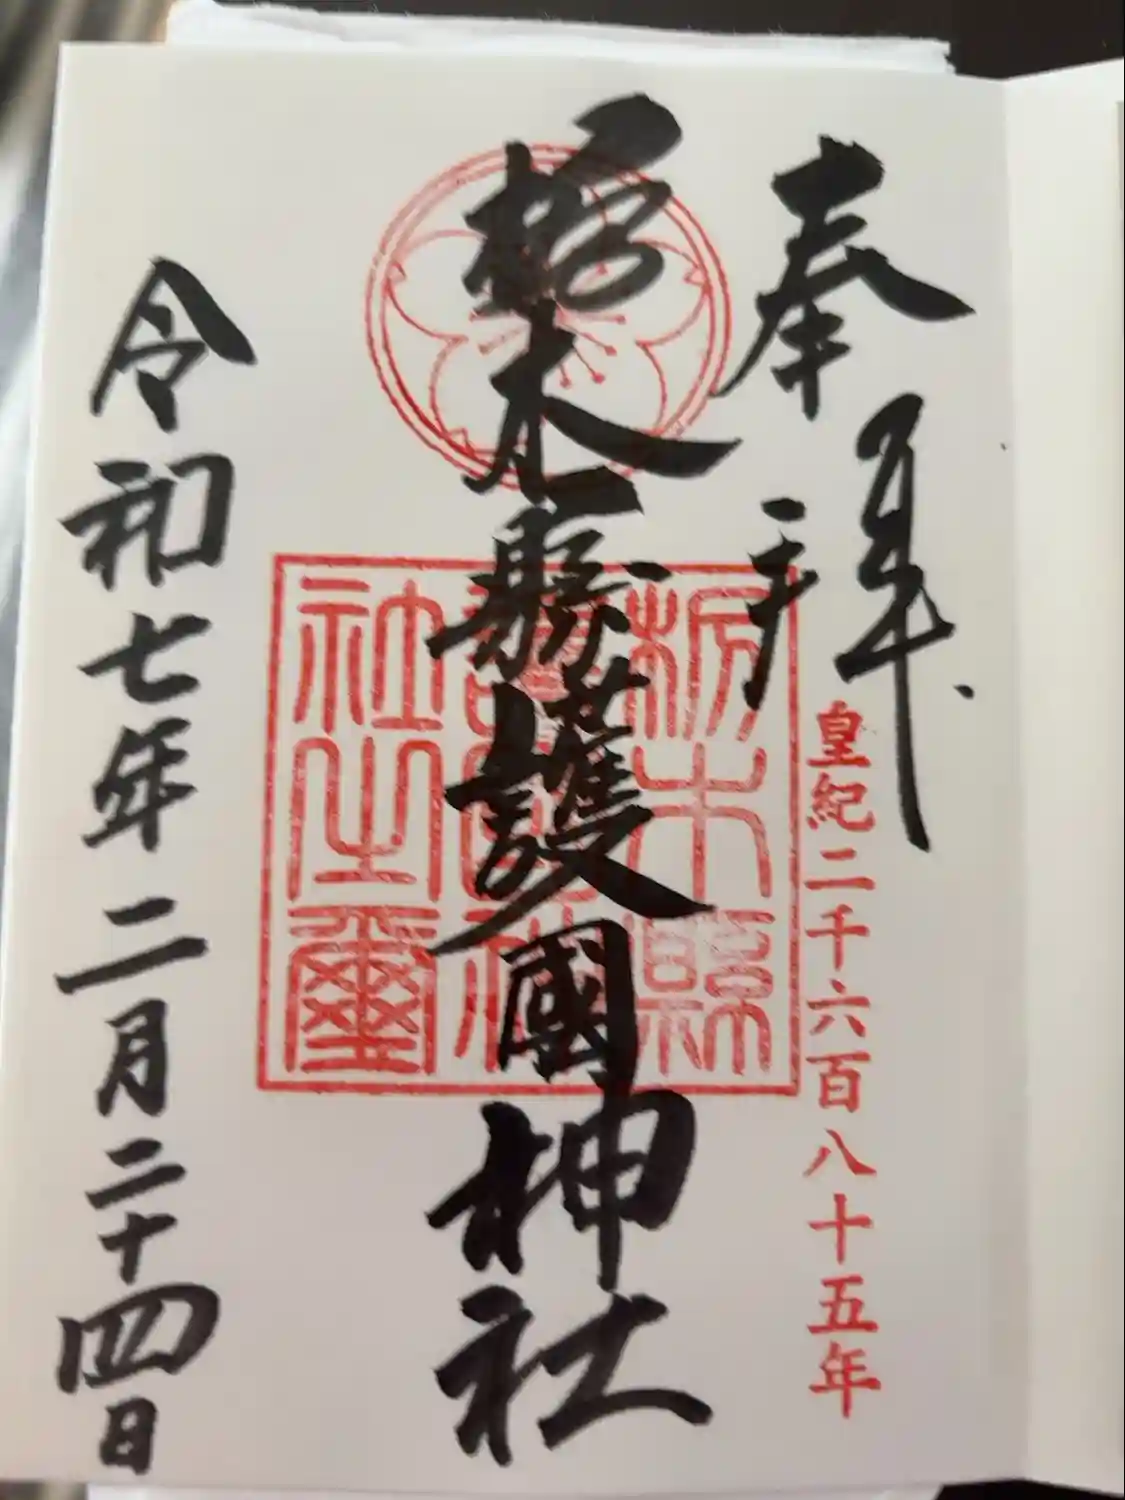 奉拜
皇紀二千六百八十五年
栃木縣護國神社
栃木縣
護國神
社之璽
令和七年二月二十四日